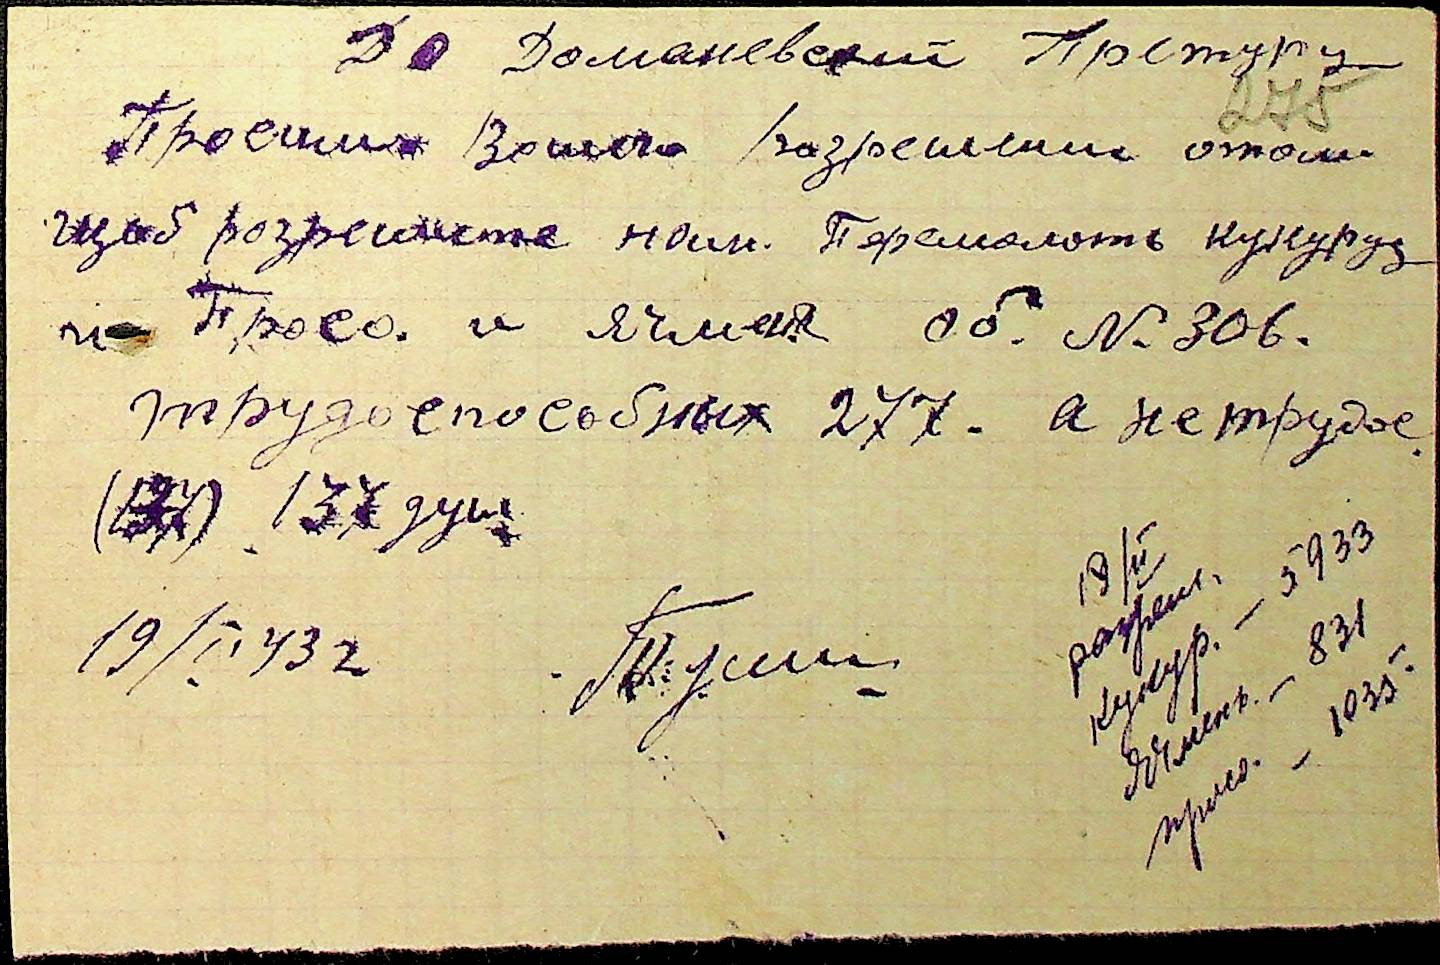 До Доманевский Претуру
275
Просим Вашого разрешения отом
щоб розрешите нам. Перемолоть кукуруз
и Просо. и Ячменя об. №306.
трудоспособных 277. а нетрудос.
(137). 137 душ
19/II 43 г
18/II
разреш.
кукур. – 5933
Ячмень. – 831
просо. – 1035.